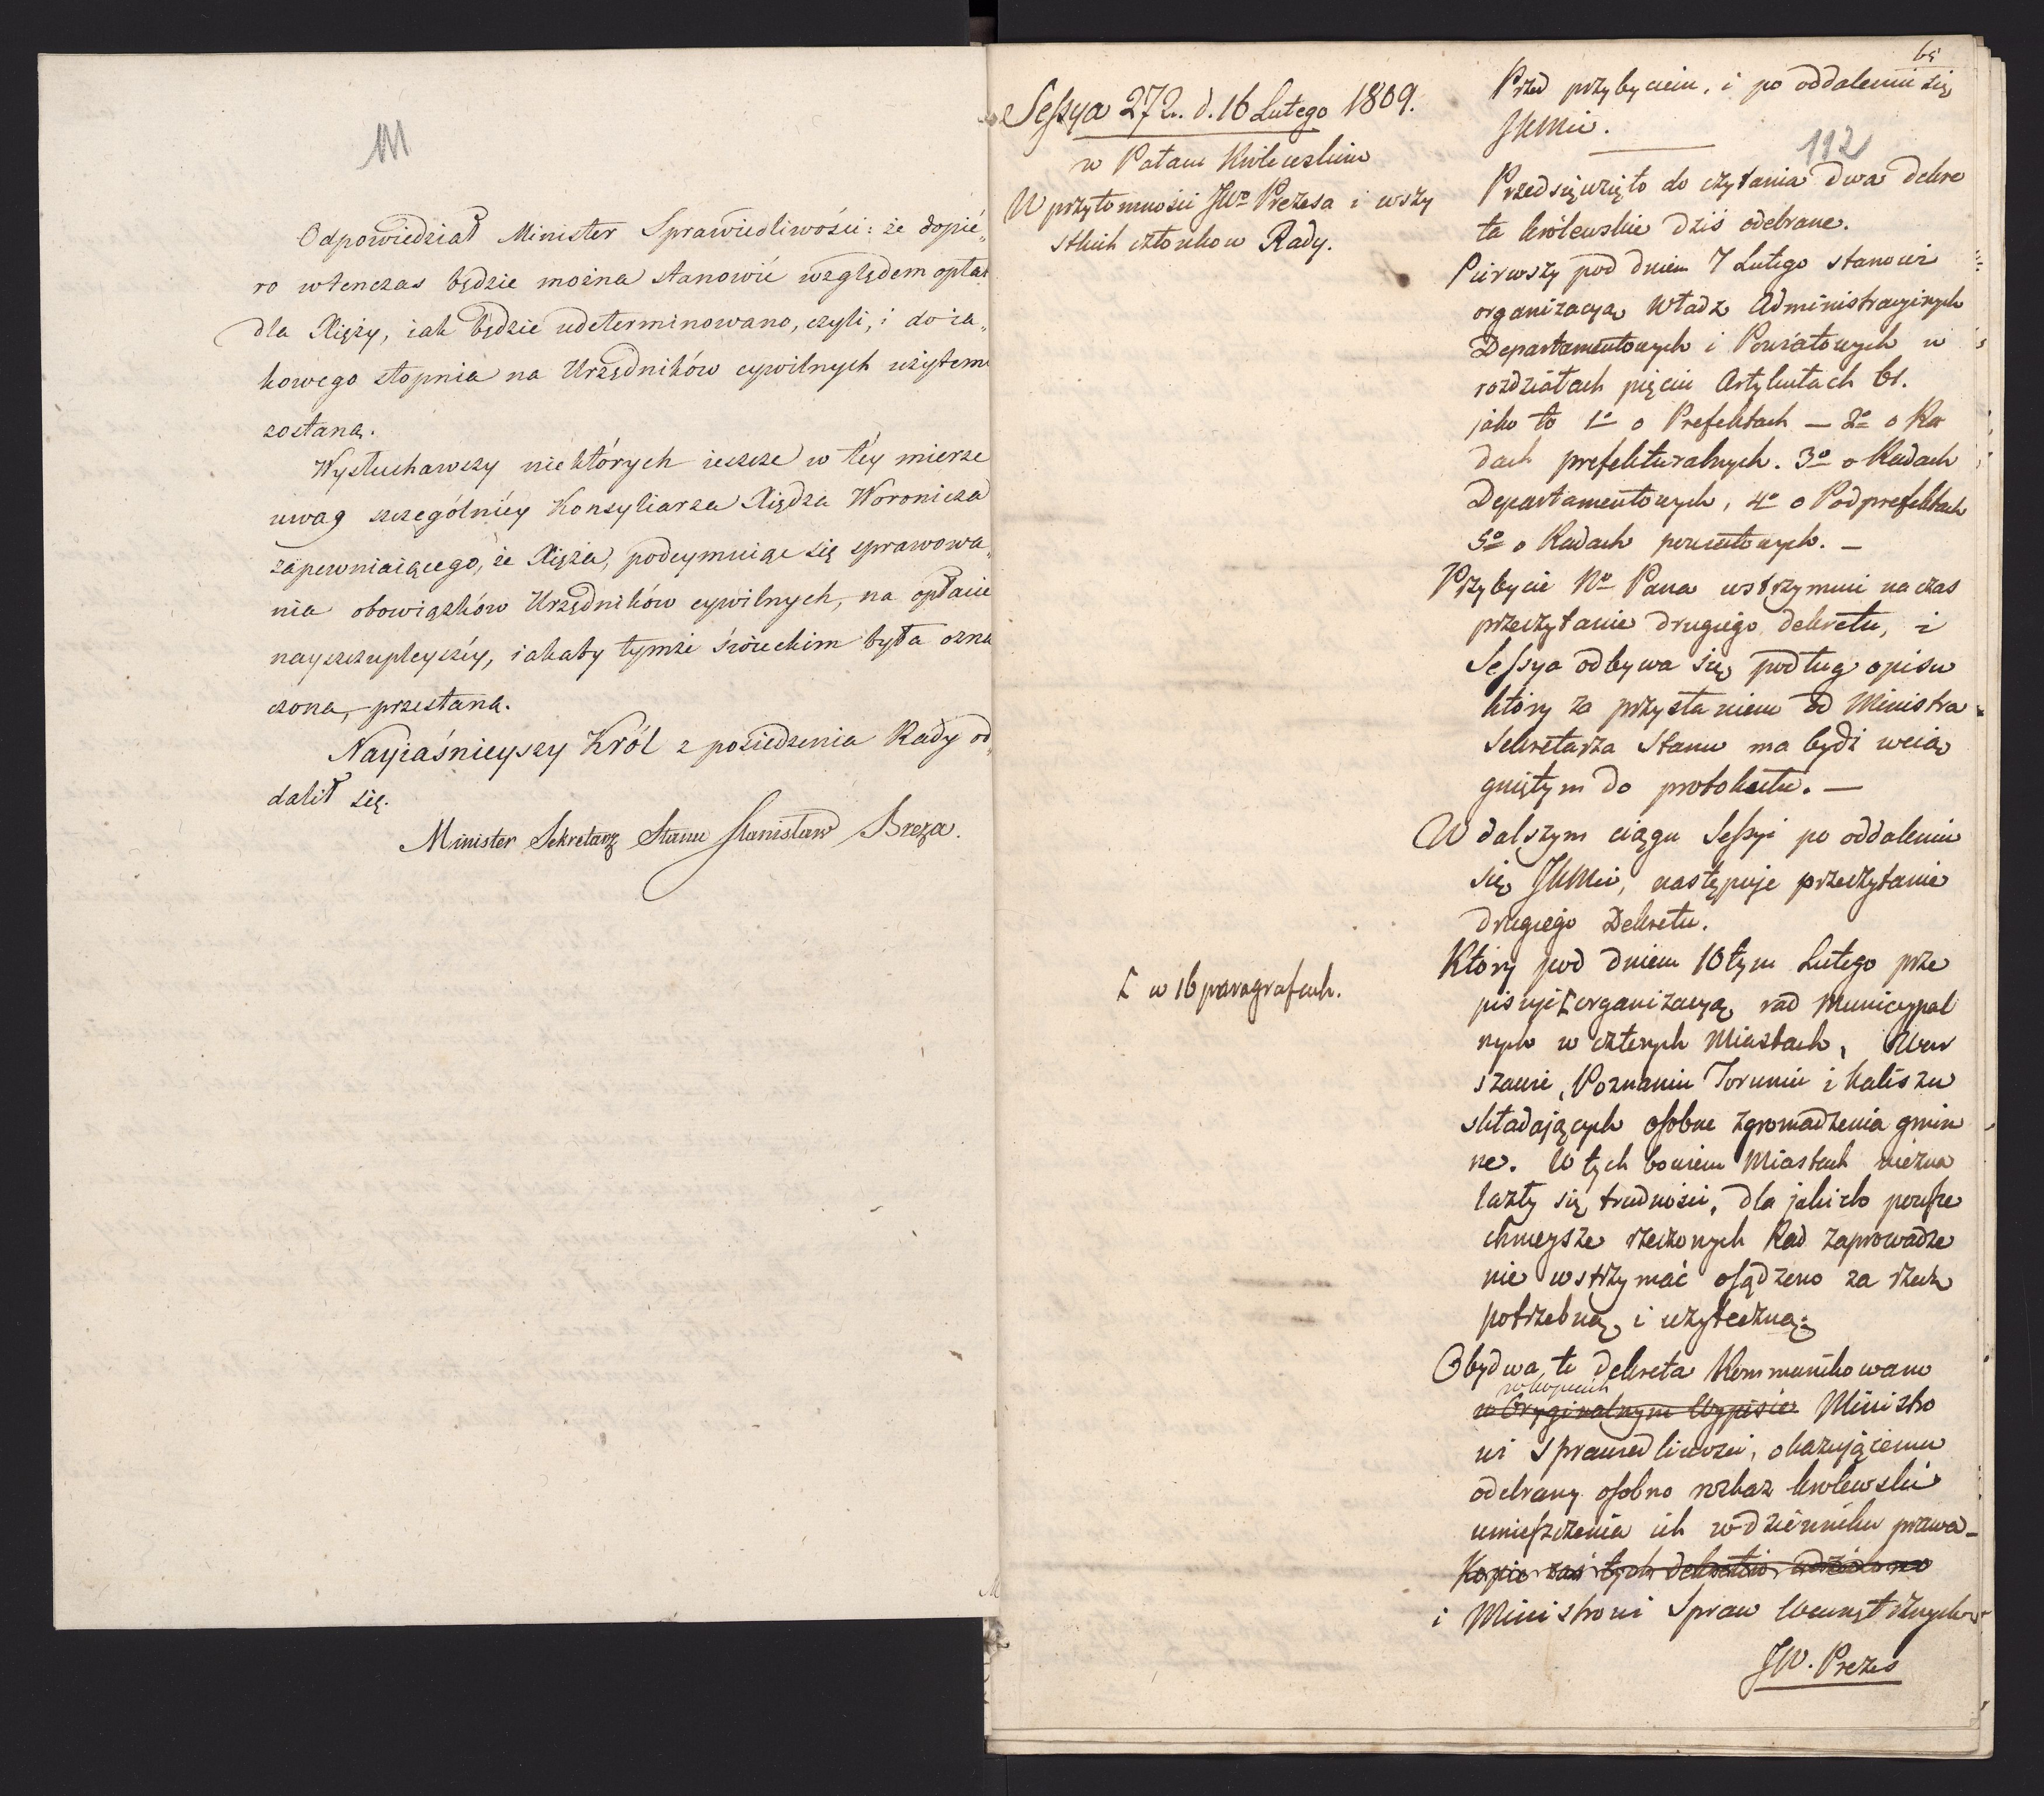 111
Odpowiedział Minister Sprawiedliwości: że dopié„
ro wtenczas będzie można stanowić względem opłat
dla Xięży, iak będzie udeterminowano, czyli, i do ia„
kowego stopnia na Urzędników cywilnych użytemi
zostaną.
Wysłuchawszy niektórych ieszcze w téy mierze
uwag szczególniéy Konsyliarza Xiędza Woronicza
zapewniaiącego, że Xięża, podeymuiąc się sprawowa„
nia obowiązków Urzędników cywilnych, na opłacie
nayszczupleyszéy, iakaby tymże świeckim była ozna
czona, przestaną.
Nayiaśnieyszy Król z posiedzenia Rady od„
dalił się.
Minister Sekretarz Stanu Stanisław Breza.
Sessya 272. d. 16 Lutego 1809.
w Pałacu Królewskim
W przytomności JWo Prezesa i wszy
stkich członkow Rady.
[ w 16 paragrafach.
65
Przed przybyciem, i po oddaleniu się
JKMci.
112
Przedsięwzięto do czytania dwa dekre
ta królewskie dziś odebrane.
Pierwszy pod dniem 7 Lutego stanowi
organizacyą Władz Administracyinych
Departamentowych i Powiatowych w
rozdziałach pięciu Artykułach 61.
jako to 1o o Prefektach — 2o o Ra
dach prefekturalnych. 3o o Radach
Departamentowych, 4o o Podprefektach
5o o Radach powiatowych. —
Przybycie No Pana wstrzymuie na czas
przeczytanie drugiego dekretu, i
Sessya odbywa się podług opisu
który za przysłaniem od Ministra
Sekretarza Stanu ma bydź wcią
gniętym do protokułu. —
W dalszym ciągu Sessyi po oddaleniu
się JKMci, następuje przeczytanie
drugiego Dekretu.
Który pod dniem 10tym Lutego prze
pisuje [ organizacyą rad Municypal
nych w czterech Miastach, War
szawie, Poznaniu Toruniu i Kaliszu
składających osobne zgromadzenia gmin
ne. W tych bowiem Miastach niezna
lazły się trudności, dla jakich powsze
chnieysze rzeczonych Rad zaprowadze
nie wstrzymać osądzono za rzecz
potrzebną, i użyteczną.
Obydwa te dekreta kommunikowano
w kopiach
w Oryginalnym Wypisie Ministro
wi Sprawiedliwości, okazującemu
odebrany osobno rozkaz królewski
umieszczenia ich w dzienniku praw —
Kopie zaś tych dekretów udzielono
i Ministrowi Spraw Wewnętrznych
JW. Prezes